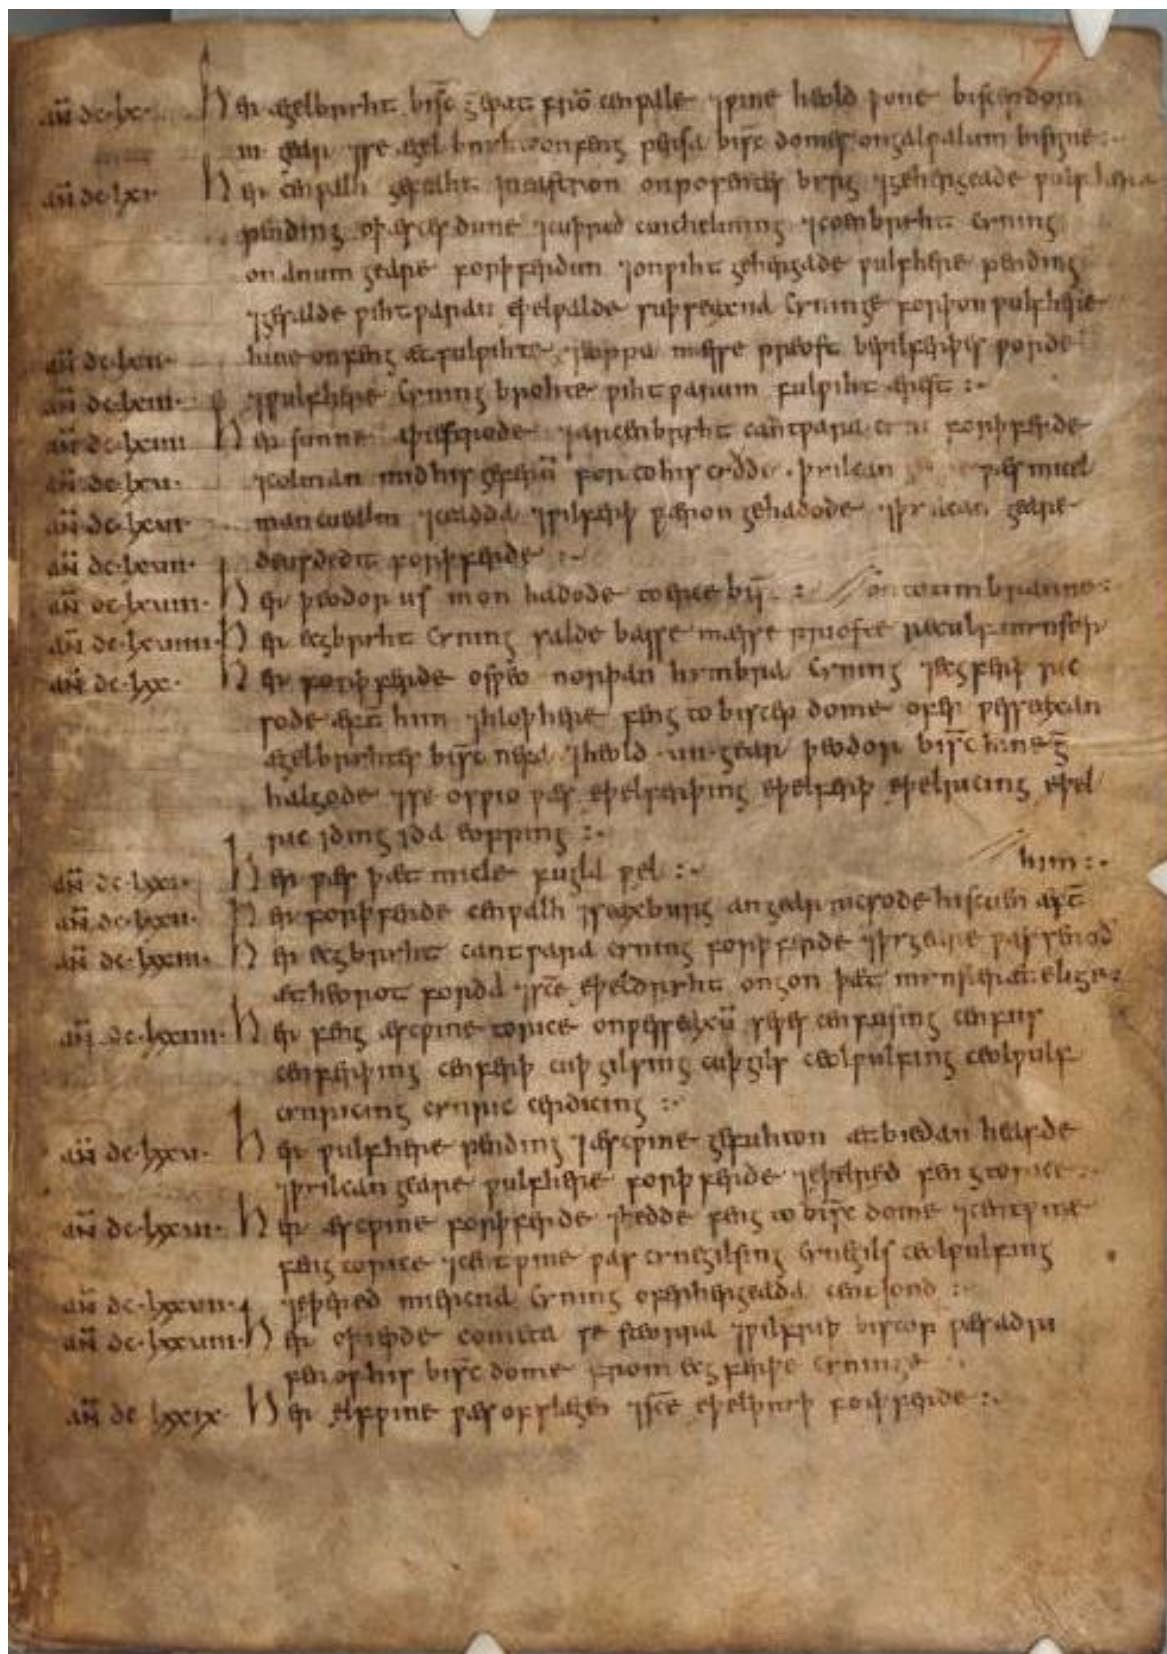 7
añ dc·lx· Her ægelbryht bisc̄ gewat frō cenwalle ⁊wine heold þone biscepdom
iii gear ⁊se ægelbryht onfeng persa bisc̄ domes ongalwalum bisigne :·
añ dc·lxi Her cenwalh gefeaht ineastron onposentes byrg ⁊gehergeade wulfhere
pending oþ æscesdune ⁊cuþred cuichelming ⁊coenbryht cyning
on anum geare forþferdun ⁊onwiht gehergade wulfhere pending
⁊gesalde wihtwaran eþelwalde suþseaxna cyninge forþon wulfhere
añ dc·lxii· hine onfeng æt fulwihte ⁊eoppa mæsse preost bewilferþes worde
añ dc·lxiii· ⁊wulfhere cyning brohte wihtwarum fulwiht ærest :·
añ dc·lxiiii Her sunne aþiestrode ⁊arcenbryht cantwara forþferde
añ dc·lxv· ⁊colman midhis geferū for tohis cyððe· þy ilcan wæs micel
añ dc·lxvi mancuealm ⁊ceadda ⁊wilferþ wæron gehadode ⁊þy ilcan geare
añ dc·lxvii· deusdedit forþferde :·
añ dc·lxviii· Her þeodorus mon hadode toerce bisc̄ :
añ dc·lxviiii· Her ecgbryht cyning salde basse mæsse prioste reculf mynster
ontotimbranne :·
añ dc·lxx· Her forþferde osweo norþan hymbra cyning ⁊ecgferþ ric
sode æft̄ him ⁊hloþhere feng to biscep dome ofer wesseaxan
ægelbryhtes bisc̄ nefa ⁊heold ·uii·gear þeodor bisc̄ hine ge
halgode ⁊se oswio wæs eþelferþing eþelferþ eþelricing eþel
ric iding ida eopping :·
añ dc·lxxi· Her wæs þæt micle fugla wæl :·
añ dc·lxxii· Her forþferde cenwalh ⁊seaxburg an gear ricsode hiscuen æft̄
him :·
añ dc·lxxiii· Her ecgbryht cantwara cyning forþferde ⁊þy geare wæs senoð
æt heorot forda ⁊sc̄e eþeldryht ongon þæt mynster æt elige :·
añ dc·lxxiiii· Her feng æscwine torice onwesseaxū seþes cenfusing cenfus
cenferþing cenferþ cuþgilsing cuþgils ceolwulfing ceolwulf
cynricing cynric cerdicing :·
añ dc·lxxv· Her wulfhere pending ⁊æscwine gefuhton æt biedan heafde
⁊þy ilcan geare wulfhere forþferde ⁊eþelred feng torice :·
añ dc·lxxvi· Her æscwine forþferde ⁊hedde feng to bisc̄ dome ⁊centwine
feng torice ⁊centwine wæs cynegilsing cynegils ceolwulfing
añ dc·lxxvii· ⁊eþered miercna cyning oferhergeada cent lond :·
añ dc·lxxviii· Her oþiewde cometa se steorra ⁊wilferþ biscop wæs adri
fen of his bisc̄ dome from ecgferþe cyninge
añ dc lxxix· Her ælfwine wæs ofslægen ⁊sc̄e eþelþryþ forþferde :·